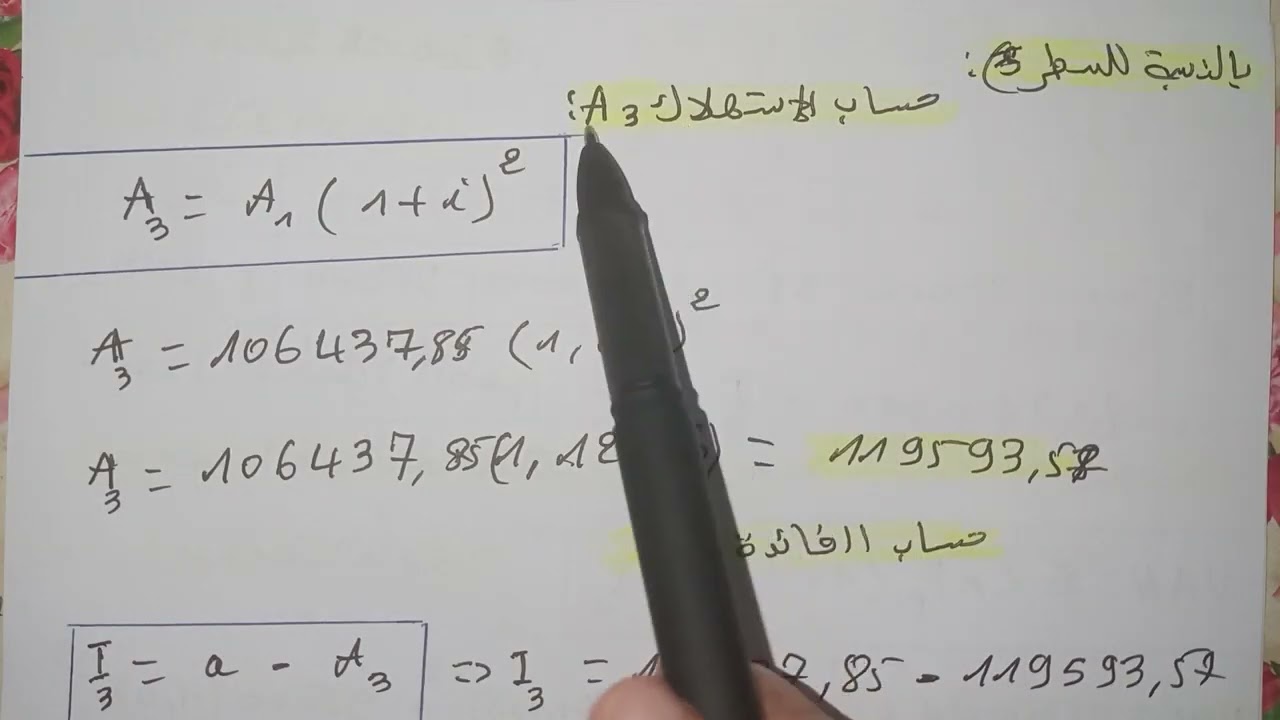 بالنسبة للسطر 3):
حساب الاستهلاك A3:
A3 = A1 (1+i)²
A3 = 106437,85 (1, )²
A3 = 106437,85(1,12 ) = 119593,57
حساب الفائدة
I3 = a - A3 => I3 = 1 7,85 - 119593,57